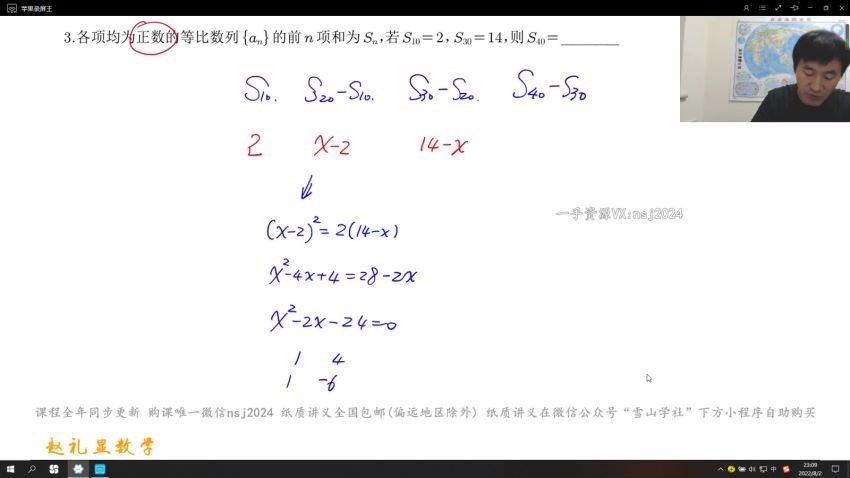 苹果录屏王
3.各项均为正数的等比数列{aₙ}的前n项和为Sₙ,若S₁₀=2,S₃₀=14,则S₄₀=________
S₁₀. S₂₀-S₁₀. S₃₀-S₂₀. S₄₀-S₃₀
2 x-2 14-x
(x-2)²=2(14-x)
x²-4x+4=28-2x
x²-2x-24=0
1 4
1 -6
一手资源VX:nsj2024
课程全年同步更新 购课唯一微信nsj2024 纸质讲义全国包邮(偏远地区除外) 纸质讲义在微信公众号“雪山学社”下方小程序自助购买
赵礼显数学
中
23:09
2022/8/2